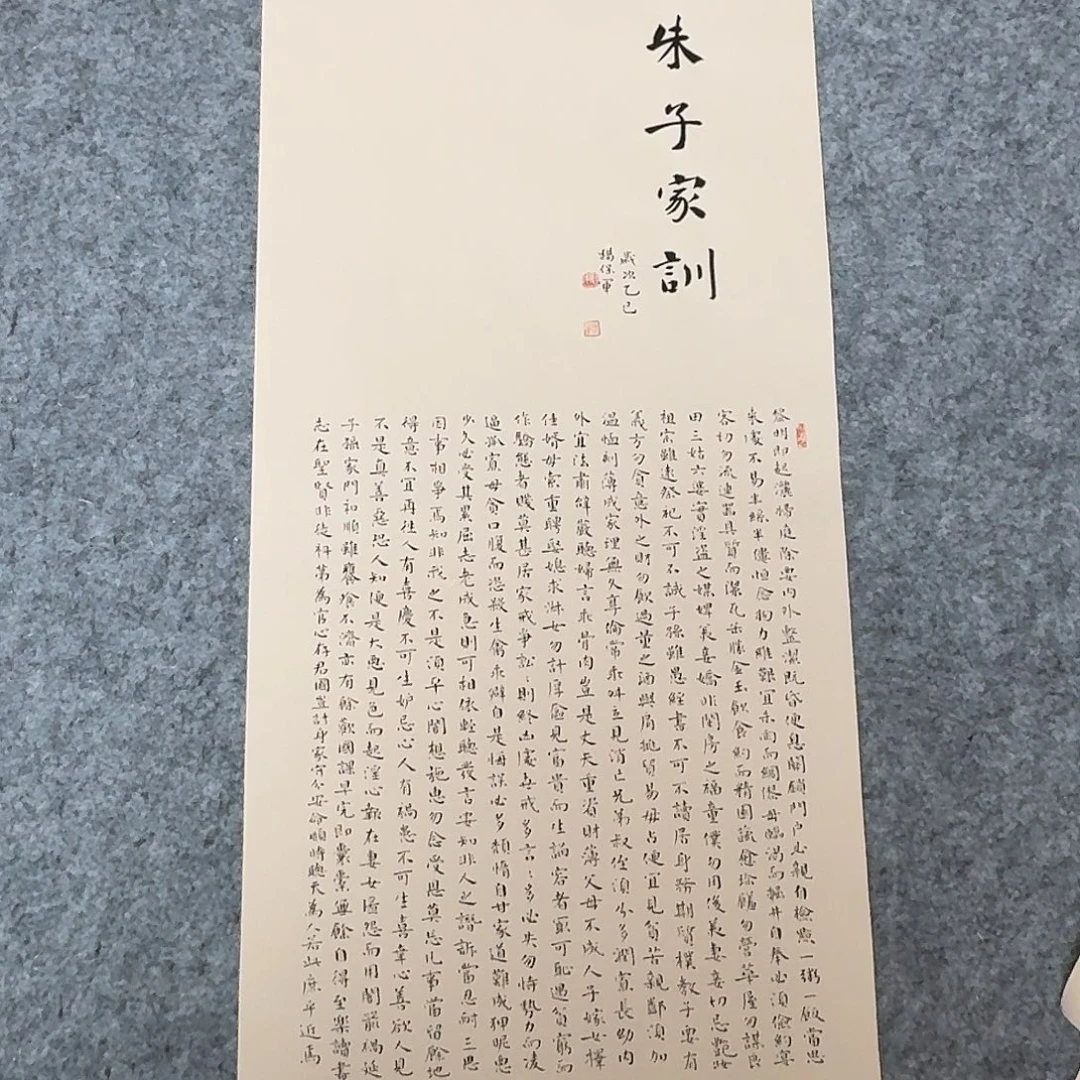 朱子家訓
歲次乙巳
楊保軍
黎明即起灑掃庭除要內外整潔既昏便息關鎖門戶必親自檢點一粥一飯當思
來處不易半絲半縷恒念物力維艱宜未雨而綢繆毋臨渴而掘井自奉必須儉約宴
客切勿流連器具質而潔瓦缶勝金玉飲食約而精園蔬愈珍饈勿營華屋勿謀良
田三姑六婆實淫盜之媒婢美妾嬌非閨房之福童僕勿用俊美妻妾切忌艷妝
祖宗雖遠祭祀不可不誠子孫雖愚經書不可不讀居身務期質樸教子要有
義方勿貪意外之財勿飲過量之酒與肩挑貿易毋占便宜見貧苦親鄰須加
溫恤刻薄成家理無久享倫常乖舛立見消亡兄弟叔侄須分多潤寡長幼內
外宜法肅辭嚴聽婦言乖骨肉豈是丈夫重資財薄父母不成人子嫁女擇
佳婿毋索重聘娶媳求淑女勿計厚奩見富貴而生諂容者最可恥遇貧窮而
作驕態者賤莫甚居家戒爭訟:則終凶處世戒多言:多必失勿恃勢力而凌
逼孤寡毋貪口腹而恣殺生禽乖僻自是悔誤必多頹惰自甘家道難成狎昵惡
少久必受其累屈志老成急則可相依輕聽發言安知非人之譖訴當忍耐三思
因事相爭焉知非我之不是須平心闇想施惠勿念受恩莫忘凡事當留餘地
得意不宜再往人有喜慶不可生妒忌心人有禍患不可生喜幸心善欲人見
不是真善惡恐人知便是大惡見色而起淫心報在妻女匿怨而用闇箭禍延
子孫家門和順雖饔飧不濟亦有餘歡國課早完即囊橐無餘自得至樂讀書
志在聖賢非徒科第為官心存君國豈計身家守分安命順時聽天為人若此庶乎近焉